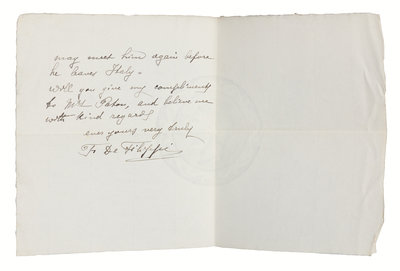 may meet him again before
he leaves Italy.
Will you give my compliments
to Mrs Paton, and believe me
with kind regards
ever yours very truly
F. De Filippi